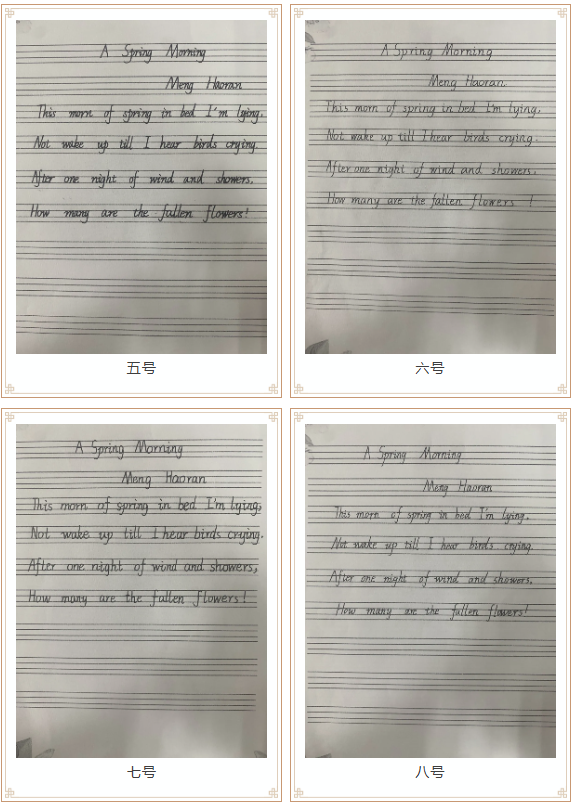 A Spring Morning
Meng Haoran
This morn of spring in bed I'm lying,
Not wake up till I hear birds crying.
After one night of wind and showers,
How many are the fallen flowers!
五号
A Spring Morning
Meng Haoran
This morn of spring in bed I'm lying,
Not wake up till I hear birds crying.
After one night of wind and showers,
How many are the fallen flowers !
六号
A Spring Morning
Meng Haoran
This morn of spring in bed I'm lying,
Not wake up till I hear birds crying.
After one night of wind and showers,
How many are the fallen flowers!
七号
A Spring Morning
Meng Haoran
This morn of spring in bed I'm lying,
Not wake up till I hear birds crying.
After one night of wind and showers,
How many are the fallen flowers!
八号